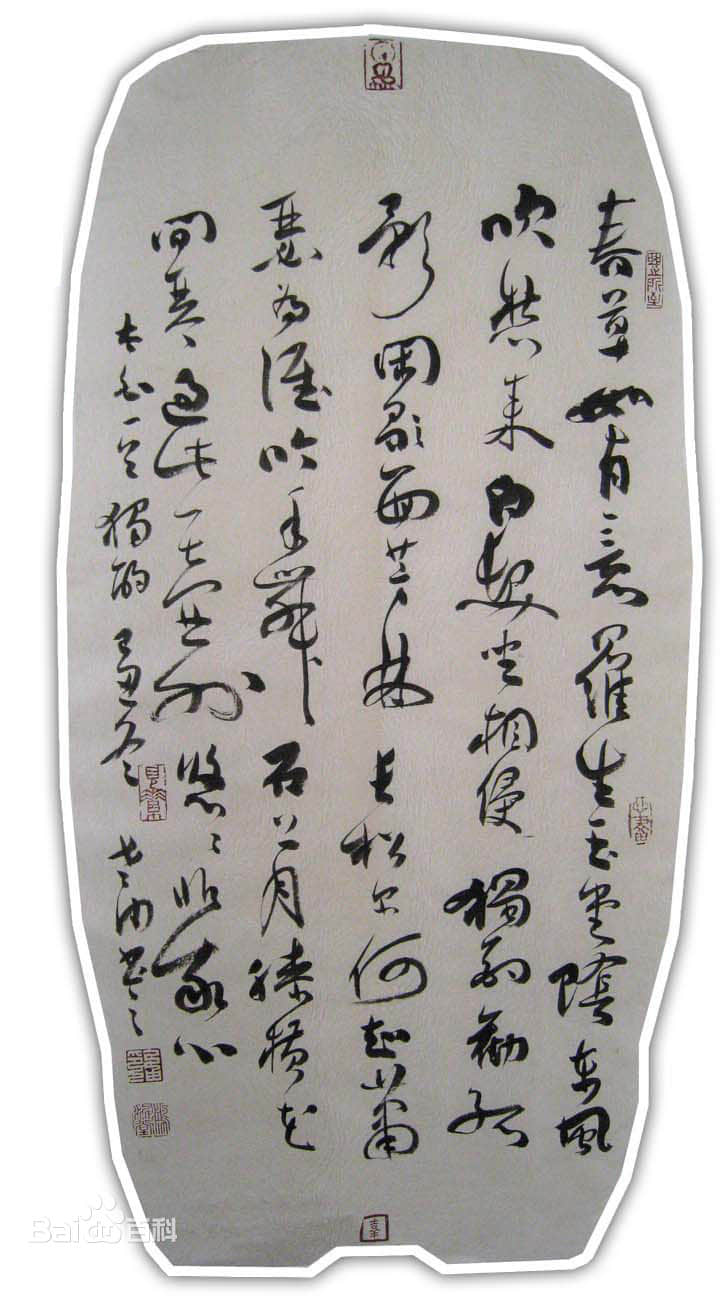 春草如有意羅生玉堂陰東風
吹愁来白髮坐相侵獨酌勸孤
影閑歌面芳林長松尔何知蕭
瑟為誰吟手舞石上月膝横花
間琴過此一壺外悠〻非我心
太白一首獨酌 己丑冬 書之
Baidu百科